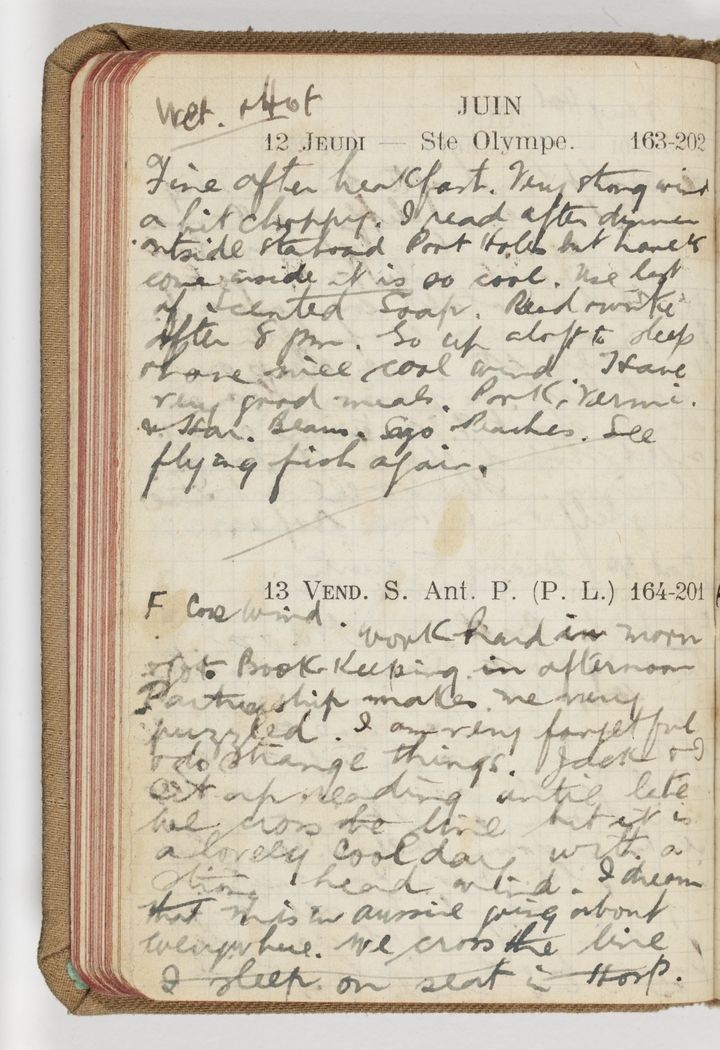 Wet. & Hot
JUIN
12 JEUDI — Ste Olympe. 163-202
Fine after breakfast. Very strong wind
a bit choppy. I read after dinner
outside Staboad Port Holes but have to
come inside it is so cool. Use last
of Scented Soap. Read & write
after 8 pm. Go up aloft to sleep
& have nice cool wind. Have
very good meals. Pork, Vermi.
& Har. Beans. Sago Peaches. See
flying fish again.
13 VEND. S. Ant. P. (P. L.) 164-201
F Cool wind. Work hard in morn
Book-Keeping in afternoon
Partnership makes me very
puzzled. I am very forgetful
& do strange things. Jack & I
sit up reading until late
We cross the line but it is
a lovely cool day with a
strong head wind. I dream
that in Aussie going about
everywhere. We cross the line
I sleep on seat in Hosp.